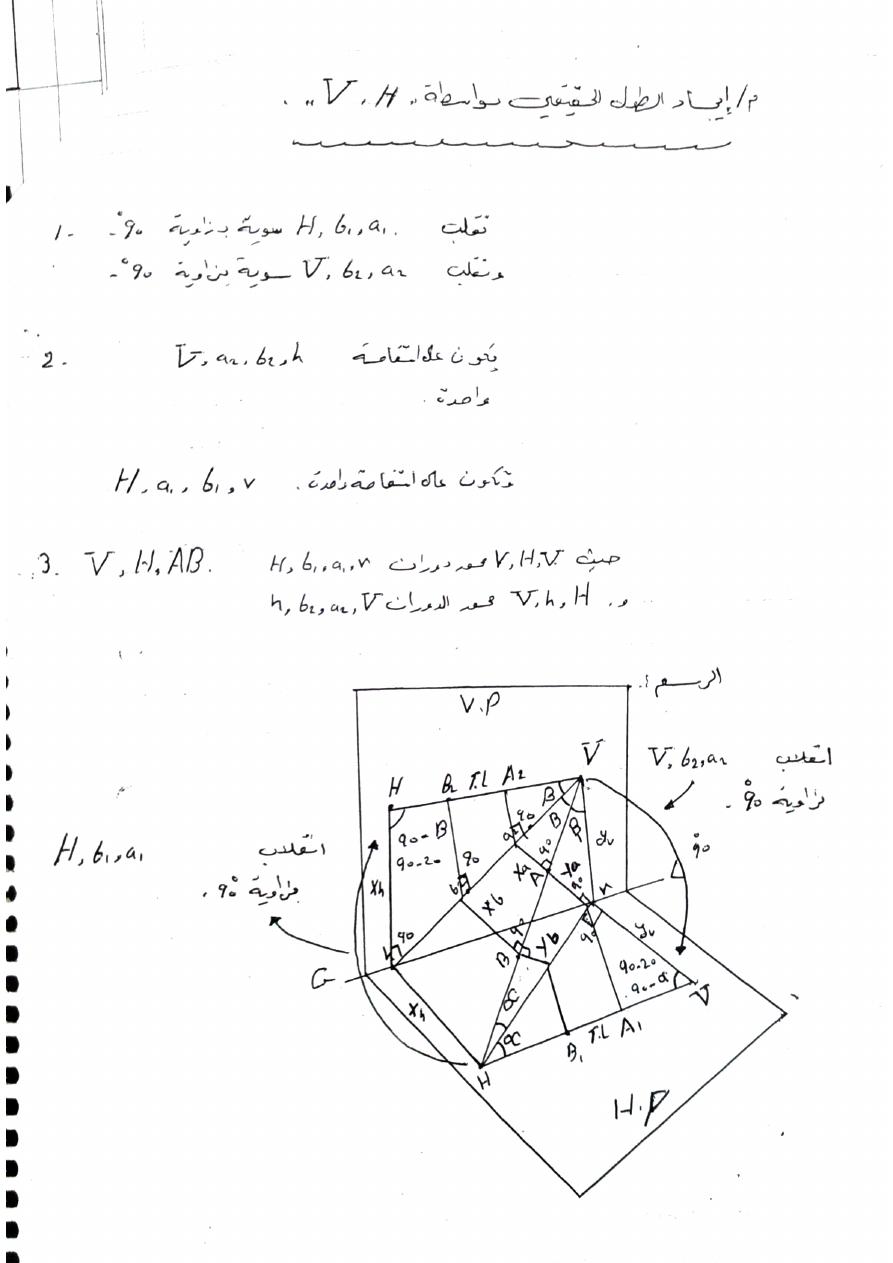 م/ إيجاد الطول الحقيقي بواسطة "V, H" .
1- نقلب H, b₁, a₁. سوية بزاوية 90°.
ونقلب V, b₂, a₂ سوية بزاوية 90°.
2- يكون على استقامة V, a₂, b₂, h
واحدة .
وتكون على استقامة واحدة. H, a₁, b₁, v
3. V, H, AB. حيث V, H, V محور دوران H, b₁, a₁, v
و. V, h, H محور الدوران h, b₂, a₂, V
الرسم :.
V.P
V
H B₂ T.L A₂
انقلاب V, b₂, a₂
بزاوية 90° .
90°
انقلاب H, b₁, a₁
بزاوية 90° .
90-B
90-20
B
B
B
90
a₂
yᵥ
90
b₂
Xa
A
90
Ya
90
h
Xh
Xb
90
V
90
B
90
Yb
90
yᵥ
G
Xh
90-20
90-α
V
α
α
H
B₁ T.L A₁
H.P